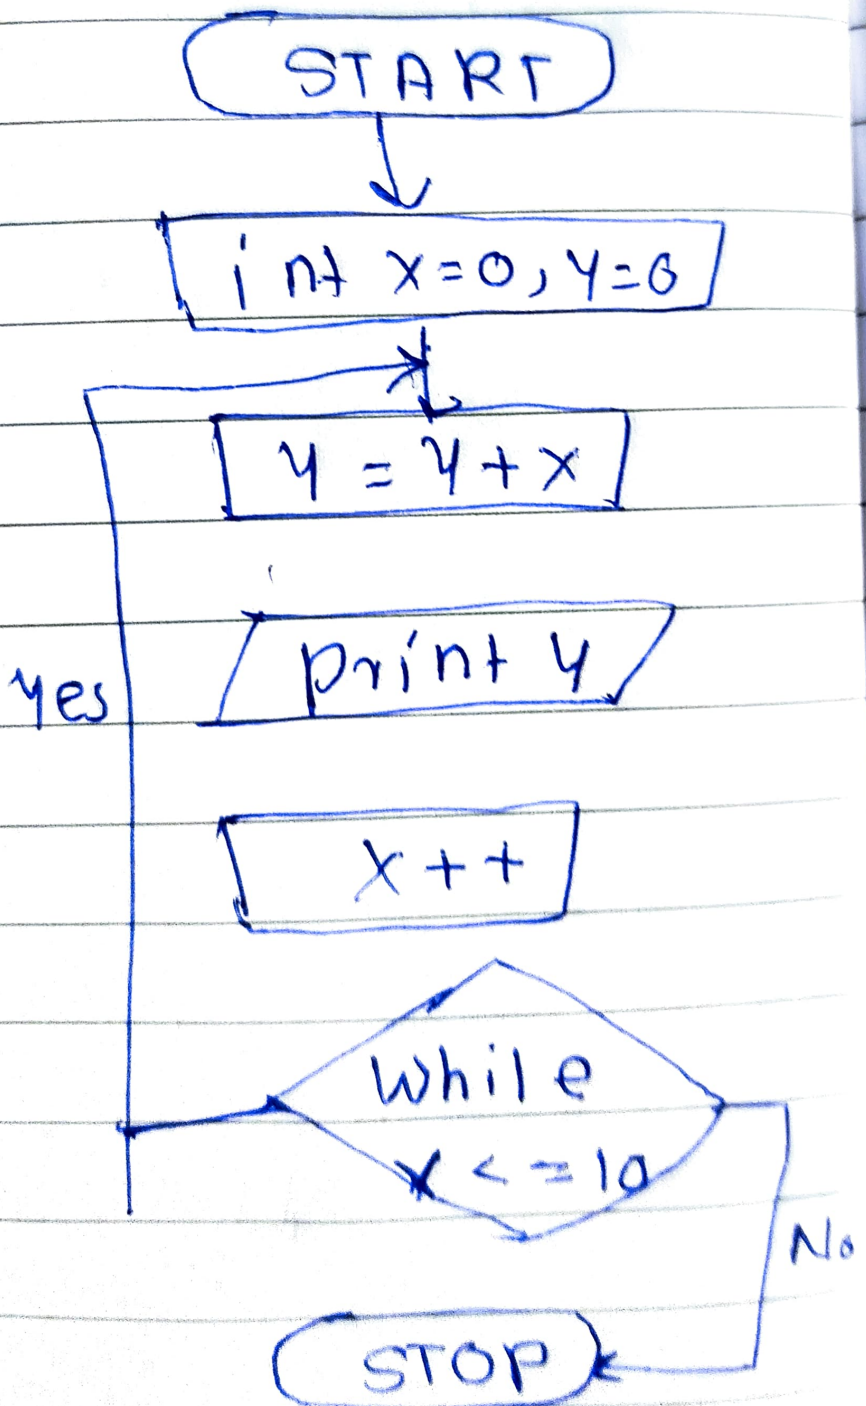 START
int x=0, y=0
y = y + x
print y
yes
x + +
While
x < = 10
No
STOP